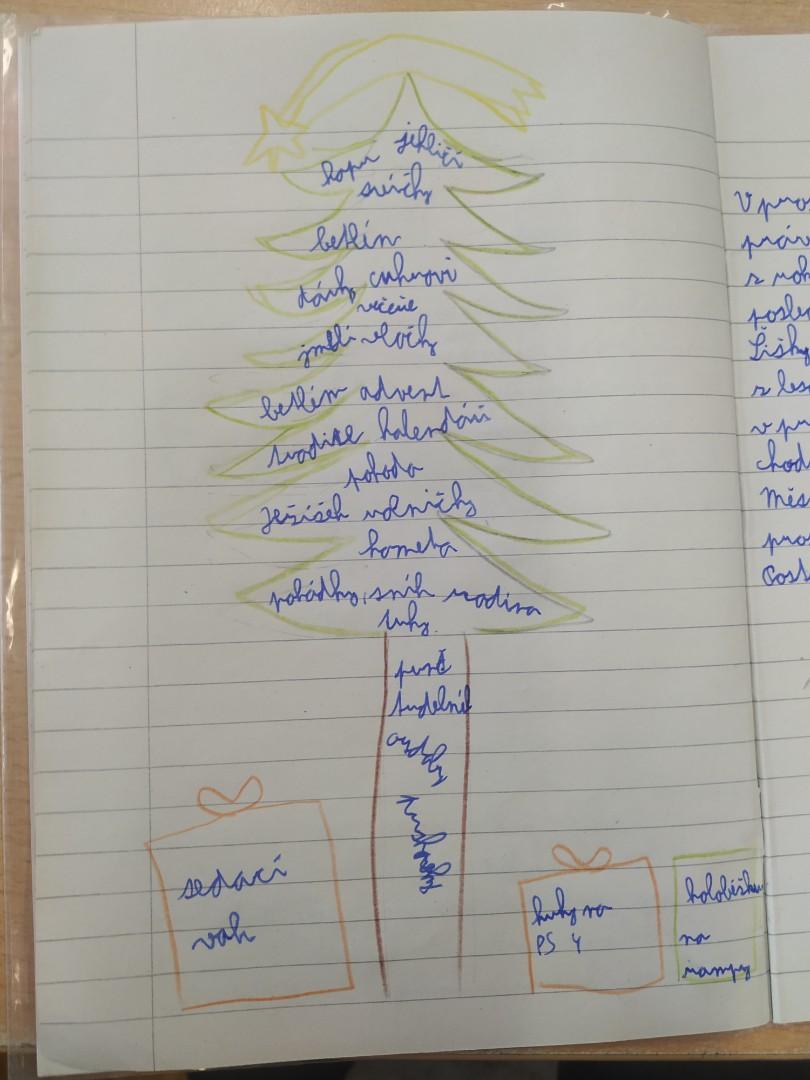 kapr jehličí
svíčky
betlém
dárky cukroví
večeře
jmelí vločky
betlém advent
tradice kalendář
pohoda
Ježíšek rolničky
kometa
pohádky, sníh rodina
purč
sedací
vak
kuky na
PS 4
koloběžku
na
rampy
V pro
práv
z roh
posled
Šišky
z les
v pr
chod
Měs
pro
Cosl